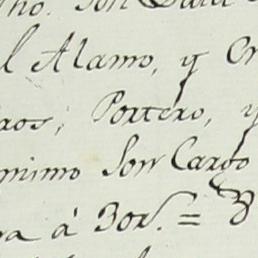 tho. Son
l Alamo, y Cr
ros; Portero, y
mimo Son Cargo
ra á 30r.^s =